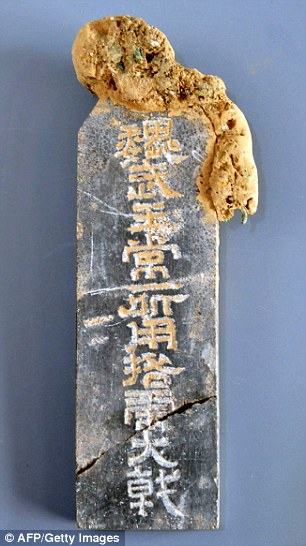 魏武王常所用挌虎大戟
© AFP/Getty Images